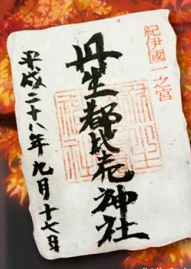 紀伊國一之宮
丹生都比売神社
平成二十八年九月十七日